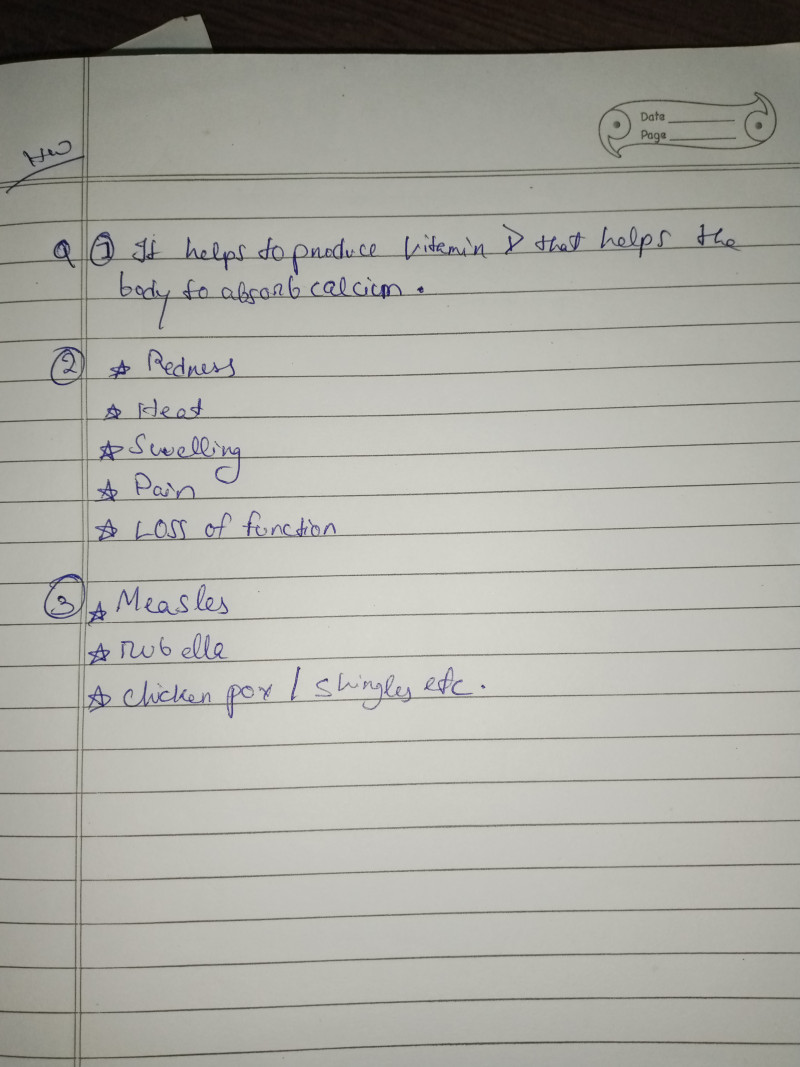 Date
Page
HW
Q ① It helps to produce Vitamin D that helps the
body to absorb calcium.
② ☆ Redness
☆ Heat
☆ Swelling
☆ Pain
☆ Loss of function
③ ☆ Measles
☆ rubella
☆ chicken pox / shingles etc.